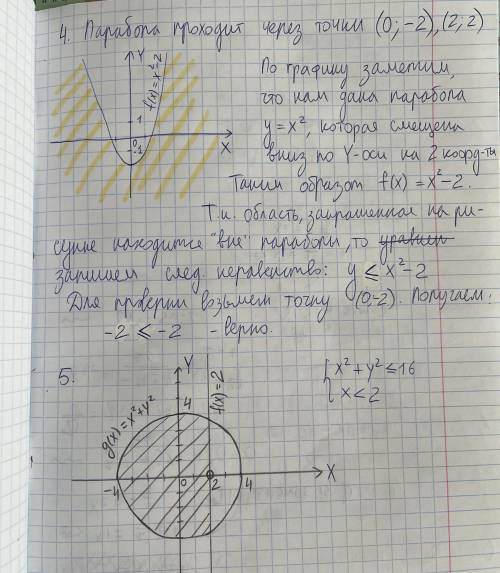 4. Парабола проходит через точки (0; -2), (2; 2)
Y
f(x) = x²-2
1
0
-1
X
По графику заметим,
что нам дана парабола
y = x², которая смещена
вниз по Y-оси на 2 коорд-ты
Таким образом f(x) = x²-2.
Т.к. область, закрашенная на ри-
сунке находится "вне" параболы, то уравнен
запишем след. неравенство: y ⩽ x²-2
Для проверки возьмем точку (0;-2). Получаем:
-2 ⩽ -2 - верно.
5.
Y
{ x² + y² ≤ 16
x < 2
g(x) = x² + y²
4
f(x) = 2
-4
0
2
4
X